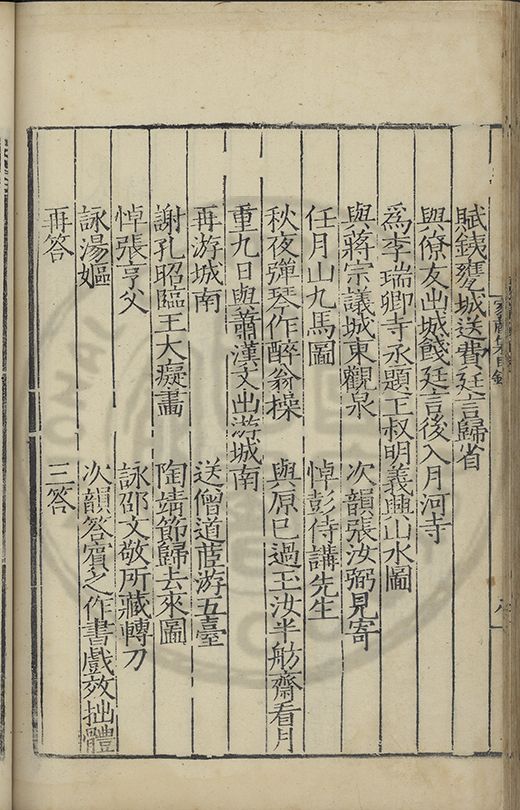 賦鐵甕城送費廷言歸省
與僚友出城餞廷言後入月河寺
為李瑞卿寺丞題王叔明義興山水圖
與蔣宗誼城東觀泉　次韻張汝弼見寄
任月山九馬圖　悼彭侍講先生
秋夜彈琴作醉翁操　與原已過玉汝半舫齋看月
重九日與蕭漢文出游城南
再游城南　送僧道茝游五臺
謝孔昭臨王大癡畫　陶靖節歸去來圖
悼張亨父　詠邵文敬所藏轉刀
詠湯嫗　次韻答賓之作書戲效拙體
再答　三答